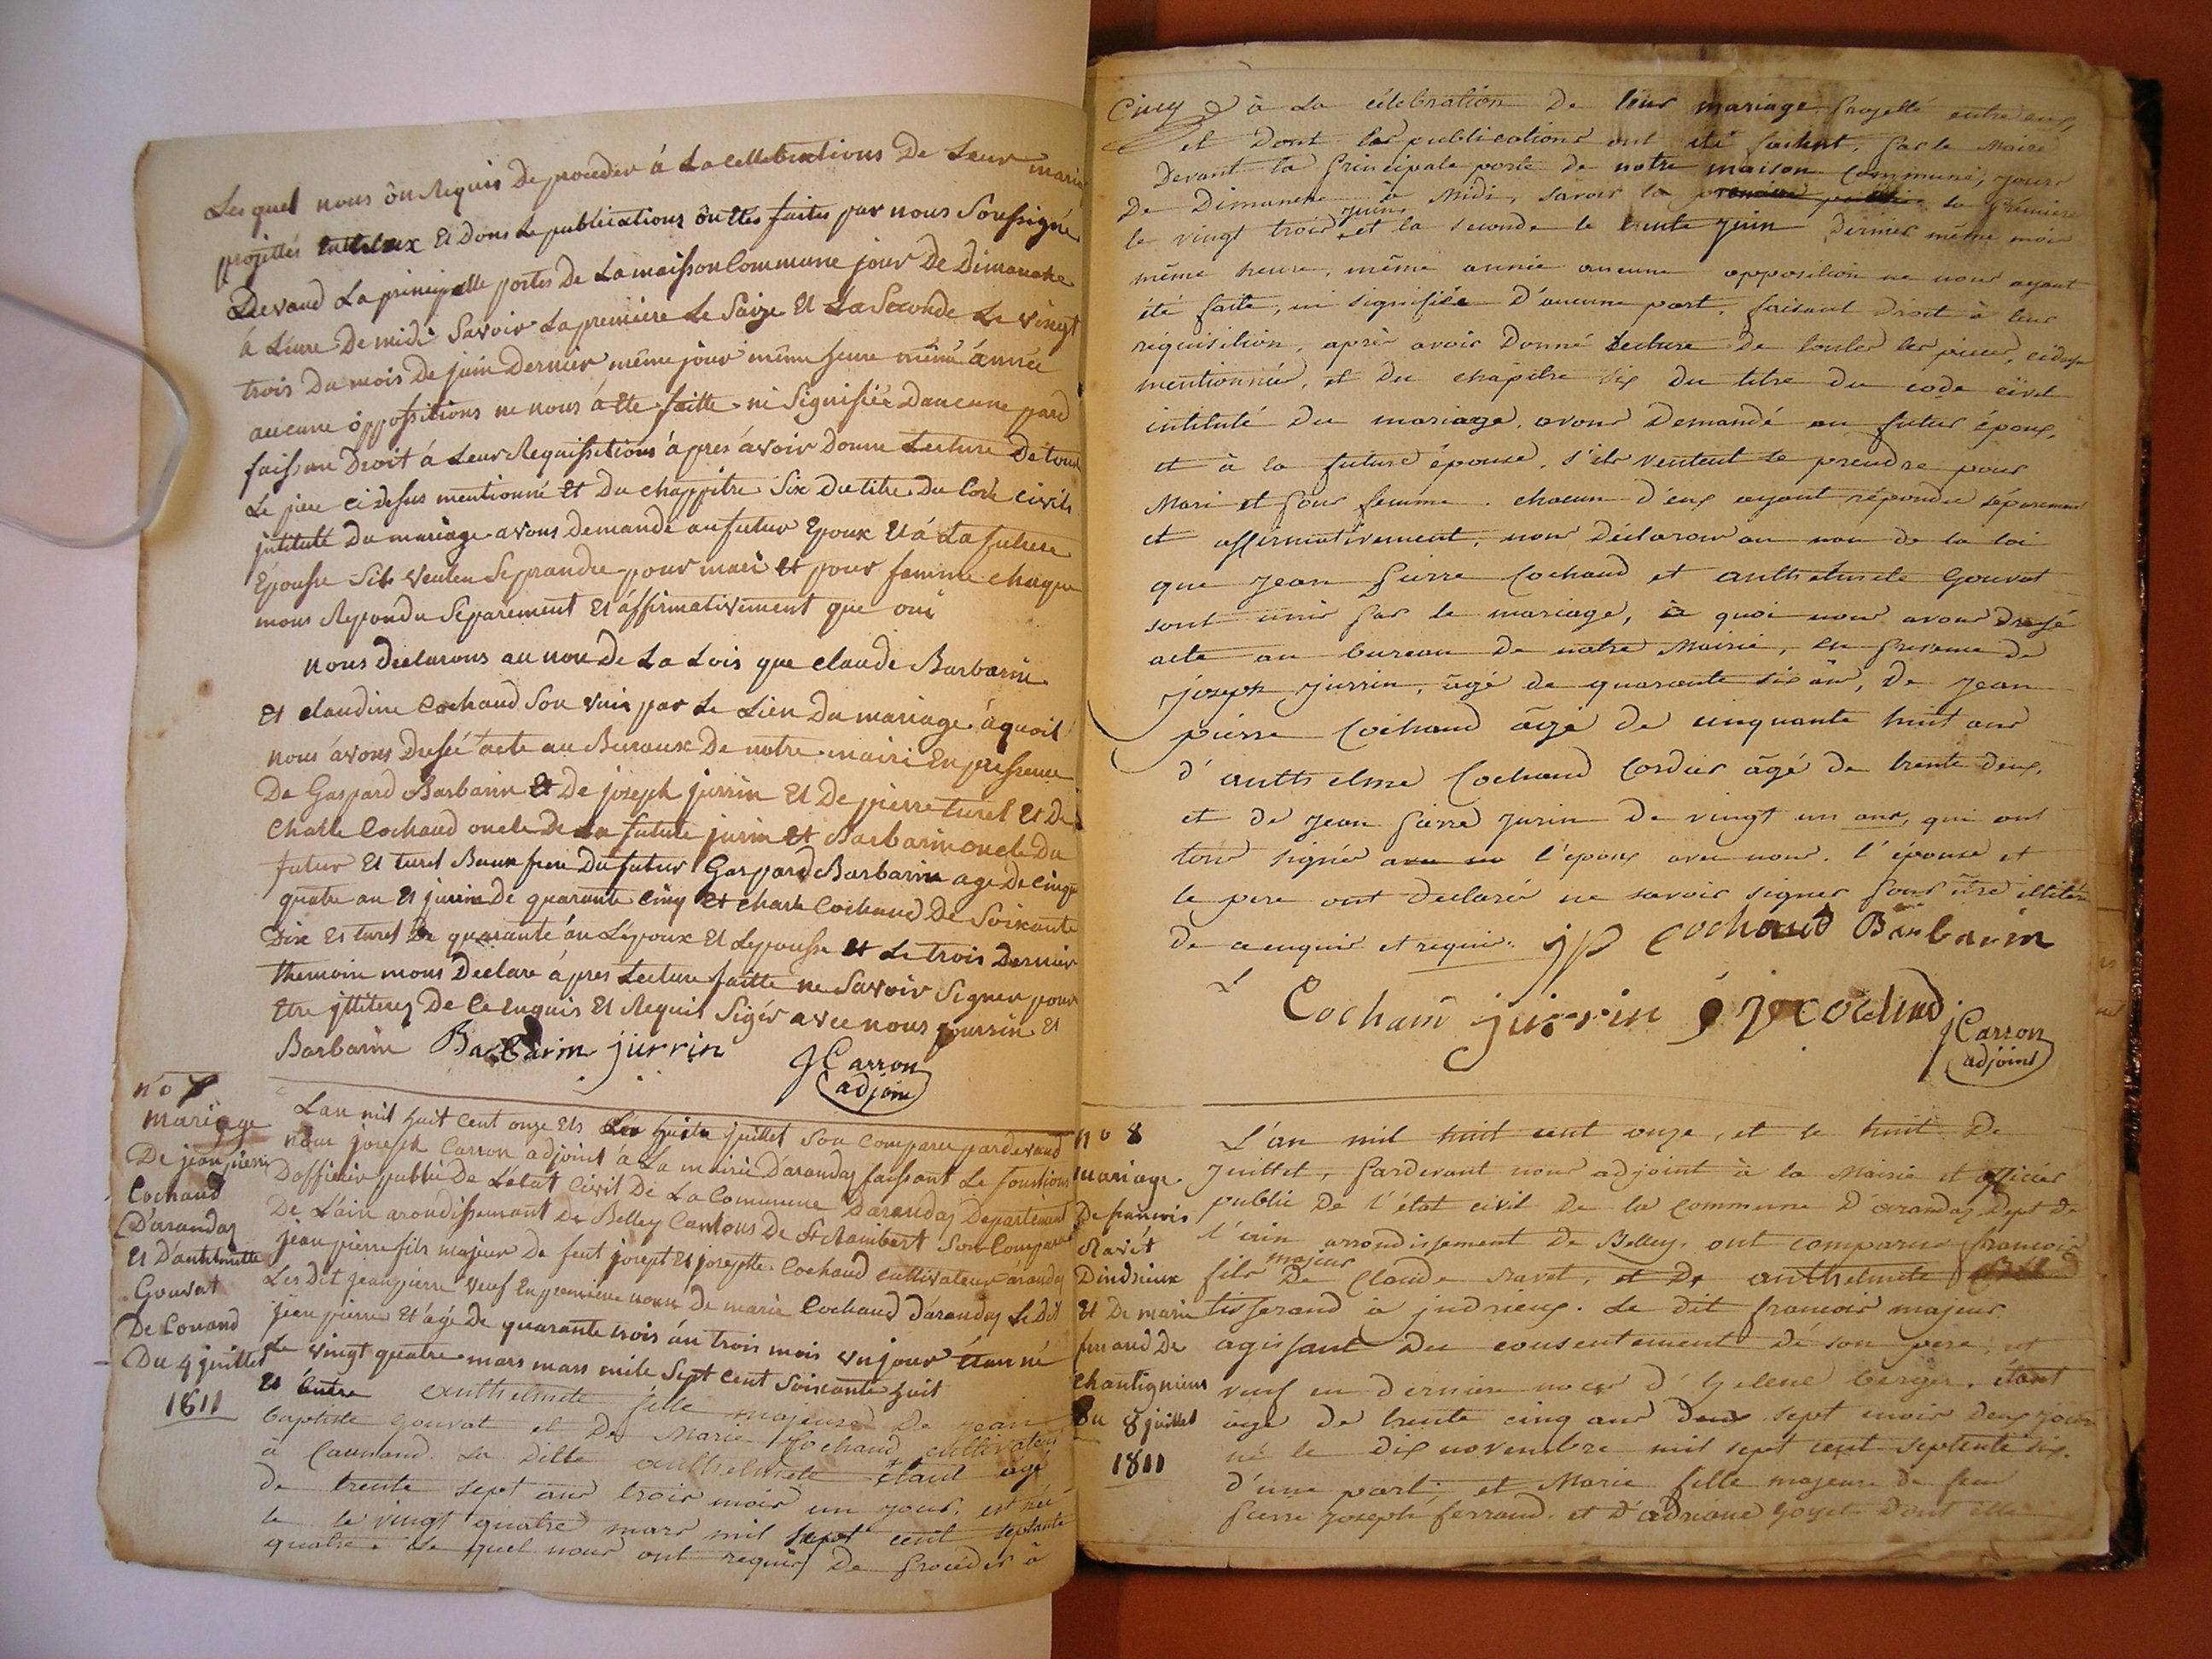 Les quel nous ôn Requis De proceder á La Cellebrations De Leur maria
projettés Entreleux Et Dons Le publications ôn Etés faites par nous Soussigné
Devand La principalle portes De La maisson Commune jour De Dimanche
á Léure De midi Savoir La premiere Le Saize Et La Seconde Le vingt
trois Du mois De juin Dernier même jour même heure même ánnée
aucune óppossitions ne nous á Ete faitte ni Signifiée Daucune pard
faissan Droit á Leur Requissitions ápres ávoir Donne Lecture De tout
Le piece ci desus mentionné Et Du chappitre Six Du titre Du Code civils
jntitulé Du mariage avons Demandé au futur Epoux Et á La future
Épousse Sils veulen Se prandre pour mari Et pour famme chaque
mons Repondu Séparement Et áffirmativement que oui
nous declarons au non De La Lois que claude Barbarin
Et claudine Cochaud Son vnis par Le Lien Du mariage áquoit
nous ávons Dressé acte au Buraux De notre mairi En pressence
De Gaspard Barbarin Et De joseph jurrin Et De pierre turel Et De
Charle Cochaud oncle De La future jurin Et Barbarin oncle Du
futur Et turel Baux frere Du futur Gaspard Barbarin age De cinqu
quatre an Et jurin De quarante Cinq Et Charle Cochaud De Soixante
Dix Et turel De quarante án Lepoux Et Lepousse Et Le trois Dernier
themoin mons Declare ápres Lecture faitte ne Savoir Signer pour
Etre jlliteres De Ce Enquis Et Requis Sigés avec nous jourrin Et
Barbarin Barbarin jurrin J Carron
adjoin
n° 7
mariage
De jean pierre
Cochaud
D'arandas
Et D'anthelmette
Gouvat
De Conand
Du 4 juillet
1811
Lan mil huit Cent onze Ets Les huite juillet Son Comparu pardevand
nous joseph Carron adjoint á La mairie D'arandas faissant Le fonstions
Dofficier public De Létat Civil De La Commune Darandas Departement
De Láin arondissemant De Belley Cantons De St Rambert Son Comparu
jean pierre fils majeur De feut josept Et josephte Cochaud cultivateur árandas
Les Dit jean pierre veuf En premiere noux De marie Cochaud D'arandas Le Dit
jean pierre Et ágé De quarante trois án trois mois vn jour Etan né
Le vingt quatre mars mars mile Sept Cent Soixante huit
Et Entre anthelmete fille majeure De jean
baptiste gouvat et De Marie Cochaud cultivateur
à Caunand. La Ditte anthelmete étant agé
de trente sept ans trois mois un jour, est née
le le vingt quatre mars mil sept cent septante
quatre. Les quel nous ont requis De procéder à
Cinq à La célébration De leur mariage projetté entre eux,
et Dont les publications ont été faites, par le Maire
Devant la principale porte de notre maison Commune, jour
De Dimanche à Midi, savoir la la première
juin
le vingt trois et la seconde le trente juin Dernier même mois
même heure, même année aucune opposition ne nous ayant
été faite, ni signifiée D'aucune part, faisant Droit à leur
réquisition, après avoir Donné lecture De toutes les pieces, cidessus
mentionnées, et Du chapitre six Du titre Du code civil
intitulé Du mariage, avons Demandé au futur époux,
et à la future épouse, s'ils veulent se prendre pour
Mari et pour femme. chacun d'eux ayant répondu séparement
et affirmativement, nous Déclarons au nom de la loi
que jean pierre Cochaud et anthelmete Gouvat
sont unis par le mariage, à quoi nous avons Dressé
acte au bureau De notre Mairie, en presence De
joseph jurrin, âgé de quarante six an, De jean
pierre Cochaud âgé De cinquante huit ans
d'anthelme Cochaud Cordier âgé De trente deux,
et De jean pierre jurin De vingt un ans, qui ont
tous signés l'époux avec nous. l'épouse et
le pere ont declarés ne savoir signer pour être illitéré
De ce enquis et requis. jp Cochaud Barbarin
Cochain jurrin J Carron
adjoint
n° 8
mariage
De francois
Ravét
Dindrieux
Et De marie
ferrand De
chantignieux
Du 8 juillet
1811
L'an mil huit cent onze, et le huit De
Juillet, pardevant nous adjoint à la Mairie et officier
public De l'état civil De la Commune D'arandas Dept De
l'ain arrondissement De Belley, ont comparus francois
majeur
fils De Claude Ravet, et De anthelmete
tisserand à jndrieux. Le dit francois majeur
agissant Du consentement De son pere, et
veuf en Derniere noces d'hylene berger, étant
âgé de trente cinq ans sept mois deux jours
né le Dix novembre mil sept cent septente six.
d'une part; et Marie fille majeure De feu
pierre joseph ferrand. et D'adriane Goyet Dont elle